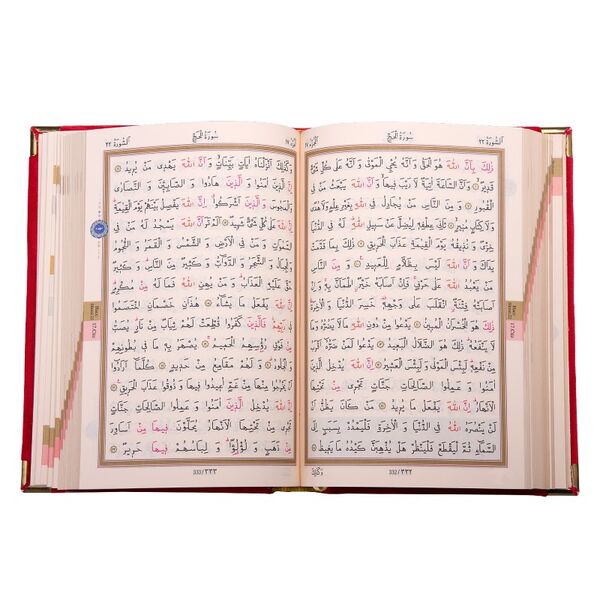 اَلْجُزْءُ ١٧ سُورَةُ الْحَجِّ اَلسُّورَةُ ٢٢
ذٰلِكَ بِاَنَّ اللّٰهَ هُوَ الْحَقُّ وَاَنَّهُ يُحْيِ الْمَوْتٰى وَاَنَّهُ عَلٰى كُلِّ شَيْءٍ
قَدِيرٌ وَاَنَّ السَّاعَةَ اٰتِيَةٌ لَا رَيْبَ فِيهَا وَاَنَّ اللّٰهَ يَبْعَثُ مَنْ فِي
الْقُبُورِ وَمِنَ النَّاسِ مَنْ يُجَادِلُ فِي اللّٰهِ بِغَيْرِ عِلْمٍ وَلَا هُدًى
وَلَا كِتَابٍ مُنِيرٍ ثَانِيَ عِطْفِهِ لِيُضِلَّ عَنْ سَبِيلِ اللّٰهِ لَهُ فِي الدُّنْيَا
خِزْيٌ وَنُذِيقُهُ يَوْمَ الْقِيٰمَةِ عَذَابَ الْحَرِيقِ ذٰلِكَ بِمَا قَدَّمَتْ
يَدَاكَ وَاَنَّ اللّٰهَ لَيْسَ بِظَلَّامٍ لِلْعَبِيدِ وَمِنَ النَّاسِ
مَنْ يَعْبُدُ اللّٰهَ عَلٰى حَرْفٍ فَاِنْ اَصَابَهُ خَيْرٌ اطْمَاَنَّ بِهِ وَاِنْ
اَصَابَتْهُ فِتْنَةٌ انْقَلَبَ عَلٰى وَجْهِهِ خَسِرَ الدُّنْيَا وَالْاٰخِرَةَ
ذٰلِكَ هُوَ الْخُسْرَانُ الْمُبِينُ يَدْعُوا مِنْ دُونِ اللّٰهِ مَا لَا يَضُرُّهُ وَمَا
لَا يَنْفَعُهُ ذٰلِكَ هُوَ الضَّلَالُ الْبَعِيدُ يَدْعُوا لَمَنْ ضَرُّهُ
اَقْرَبُ مِنْ نَفْعِهِ لَبِئْسَ الْمَوْلٰى وَلَبِئْسَ الْعَشِيرُ اِنَّ اللّٰهَ
يُدْخِلُ الَّذِينَ اٰمَنُوا وَعَمِلُوا الصَّالِحَاتِ جَنَّاتٍ تَجْرِي مِنْ تَحْتِهَا
الْاَنْهَارُ اِنَّ اللّٰهَ يَفْعَلُ مَا يُرِيدُ مَنْ كَانَ يَظُنُّ اَنْ
لَنْ يَنْصُرَهُ اللّٰهُ فِي الدُّنْيَا وَالْاٰخِرَةِ فَلْيَمْدُدْ بِسَبَبٍ اِلَى
السَّمَاءِ ثُمَّ لْيَقْطَعْ فَلْيَنْظُرْ هَلْ يُذْهِبَنَّ كَيْدُهُ مَا يَغِيظُ
332/٣٣٢
وَكَذٰلِكَ
اَلسُّورَةُ ٢٢ سُورَةُ الْحَجِّ
وَكَذٰلِكَ اَنْزَلْنَاهُ اٰيَاتٍ بَيِّنَاتٍ وَاَنَّ اللّٰهَ يَهْدِي مَنْ يُرِيدُ
اِنَّ الَّذِينَ اٰمَنُوا وَالَّذِينَ هَادُوا وَالصَّابِئِينَ وَالنَّصَارٰى
وَالْمَجُوسَ وَالَّذِينَ اَشْرَكُوا اِنَّ اللّٰهَ يَفْصِلُ بَيْنَهُمْ يَوْمَ الْقِيٰمَةِ
اِنَّ اللّٰهَ عَلٰى كُلِّ شَيْءٍ شَهِيدٌ اَلَمْ تَرَ اَنَّ اللّٰهَ يَسْجُدُ لَهُ مَنْ فِي
السَّمٰوَاتِ وَمَنْ فِي الْاَرْضِ وَالشَّمْسُ وَالْقَمَرُ وَالنُّجُومُ
وَالْجِبَالُ وَالشَّجَرُ وَالدَّوَابُّ وَكَثِيرٌ مِنَ النَّاسِ وَكَثِيرٌ
حَقَّ عَلَيْهِ الْعَذَابُ وَمَنْ يُهِنِ اللّٰهُ فَمَا لَهُ مِنْ مُكْرِمٍ
اِنَّ اللّٰهَ يَفْعَلُ مَا يَشَاءُ هٰذَانِ خَصْمَانِ اخْتَصَمُوا
فِي رَبِّهِمْ فَالَّذِينَ كَفَرُوا قُطِّعَتْ لَهُمْ ثِيَابٌ مِنْ نَارٍ يُصَبُّ
مِنْ فَوْقِ رُؤُسِهِمُ الْحَمِيمُ يُصْهَرُ بِهِ مَا فِي بُطُونِهِمْ
وَالْجُلُودُ وَلَهُمْ مَقَامِعُ مِنْ حَدِيدٍ كُلَّمَا اَرَادُوا
اَنْ يَخْرُجُوا مِنْهَا مِنْ غَمٍّ اُعِيدُوا فِيهَا وَذُوقُوا عَذَابَ الْحَرِيقِ
اِنَّ اللّٰهَ يُدْخِلُ الَّذِينَ اٰمَنُوا وَعَمِلُوا الصَّالِحَاتِ جَنَّاتٍ
تَجْرِي مِنْ تَحْتِهَا الْاَنْهَارُ يُحَلَّوْنَ فِيهَا مِنْ اَسَاوِرَ
مِنْ ذَهَبٍ وَلُؤْلُؤًا وَلِبَاسُهُمْ فِيهَا حَرِيرٌ
333/٣٣٣